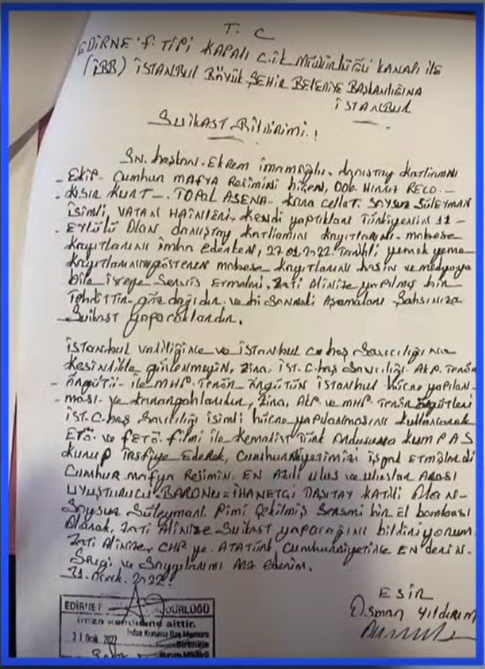 T. C
EDİRNE F TİPİ KAPALI C.İK MÜDÜRLÜĞÜ KANALI İLE
(İBB) İSTANBUL BÜYÜK ŞEHİR BELEDİYE BAŞKANLIĞINA
İSTANBUL
Suikast Bildirimi!
SN. Başkan. Ekrem İmamoğlu. Danıştay Katliamını
EKİP- Cumhur Mafya Rejimini
KISIR KURT - TOPAL ASENA - KARA CELLAT. SOYSUZ SÜLEYMAN
İsimli, VATAN HAİNLERİ. Kendi yaptıkları Türkiyenin 11-
EYLÜLÜ OLAN, Danıştay Katliamın Kayıtlarını - mobese
Kayıtlarını imha ederken, 27.01.2022 Tarihli yemek yeme
Kayıtlarını gösteren mobese kayıtlarını basın ve medyaya
bile Servis Etmeleri. Zati Alinize yapılmış bir
Tehdittir göz dağıdır. ve bi Sonraki Aşamaları Şahsınıza
Suikast yapacaklardır.
İstanbul Valiliğine ve İstanbul C. baş Savcılığına
Kesinlikle güvenmeyin, Zira. İst. C. baş Savcılığı. Akp. Terör
- örgütü - ile MHP. Terör örgütün İstanbul hücre yapılan-
ması ve Zira, AKP ve MHP. Terör örgütleri
İst. C. baş Savcılığı isimli hücre yapılanmasını kullanarak
ETÖ. ve FETÖ. filmi ile Kemalist Türk Ordusuna KUMPAS
Kurup Tasfiye Ederek, Cumhuriyetimizi işgal Etmişlerdi
Cumhur mafya Rejimin. EN AZILI ulus ve uluslar Arası
UYUŞTURUCU BARONU = İHANETÇİ DANIŞTAY KATİLİ Olan-
Soysuz Süleyman. Pimi Çekilmiş Serseri bir El bombası
Olarak, Zati Alinize Suikast yapacağını bildiriyorum
Zati Alinize, CHP ye. ATATÜRK Cumhuriyetine EN derin.
Sevgi ve Saygılarımı Arz ederim.
31. Ocak. 2022
ESİR
Osman Yıldırım
EDİRNE F MÜDÜRLÜĞÜ
imza kendisine aittir.
İnfaz Koruma Baş Memuru
31 Ocak 2022